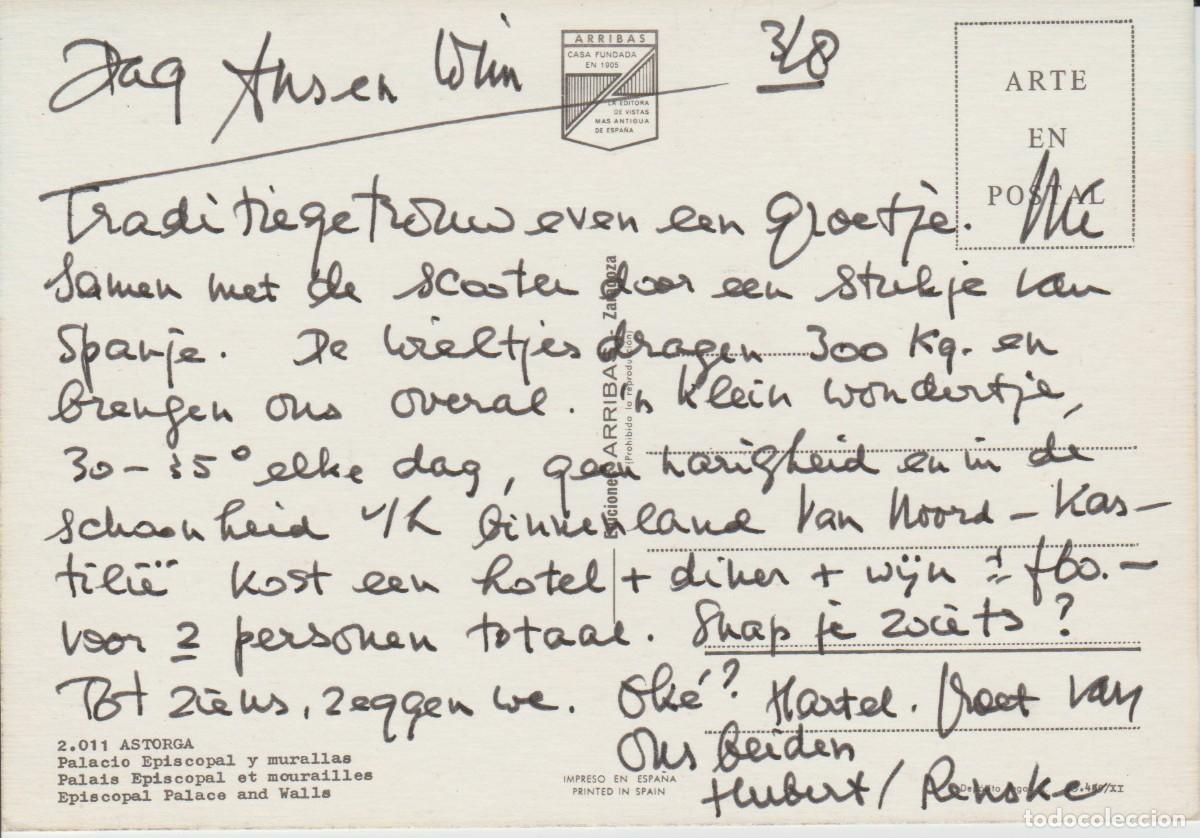 Dag Ansen Wim
3/8
ARRIBAS
CASA FUNDADA
EN 1905
LA EDITORA
DE VISTAS
MAS ANTIGUA
DE ESPAÑA
ARTE
EN
POSTAL
Traditiegetrouw even een groetje. Nu
samen met de scooter door een stukje van
Spanje. De wieltjes dragen 300 kg. en
brengen ons overal. 'n klein wondertje,
30-35° elke dag, geen narigheid en in de
schoonheid v/h binnenland van Noord-Kas-
tilië kost een hotel + diner + wijn ± f60.-
voor 2 personen totaal. Snap je zoiets?
Tot ziens, zeggen we. Oké? Hartel. groet van
ons beiden
Hubert / Renske
Ediciones ARRIBAS - Zaragoza
(Prohibida la reproducción)
2.011 ASTORGA
Palacio Episcopal y murallas
Palais Episcopal et mourailles
Episcopal Palace and Walls
IMPRESO EN ESPAÑA
PRINTED IN SPAIN
todocoleccion